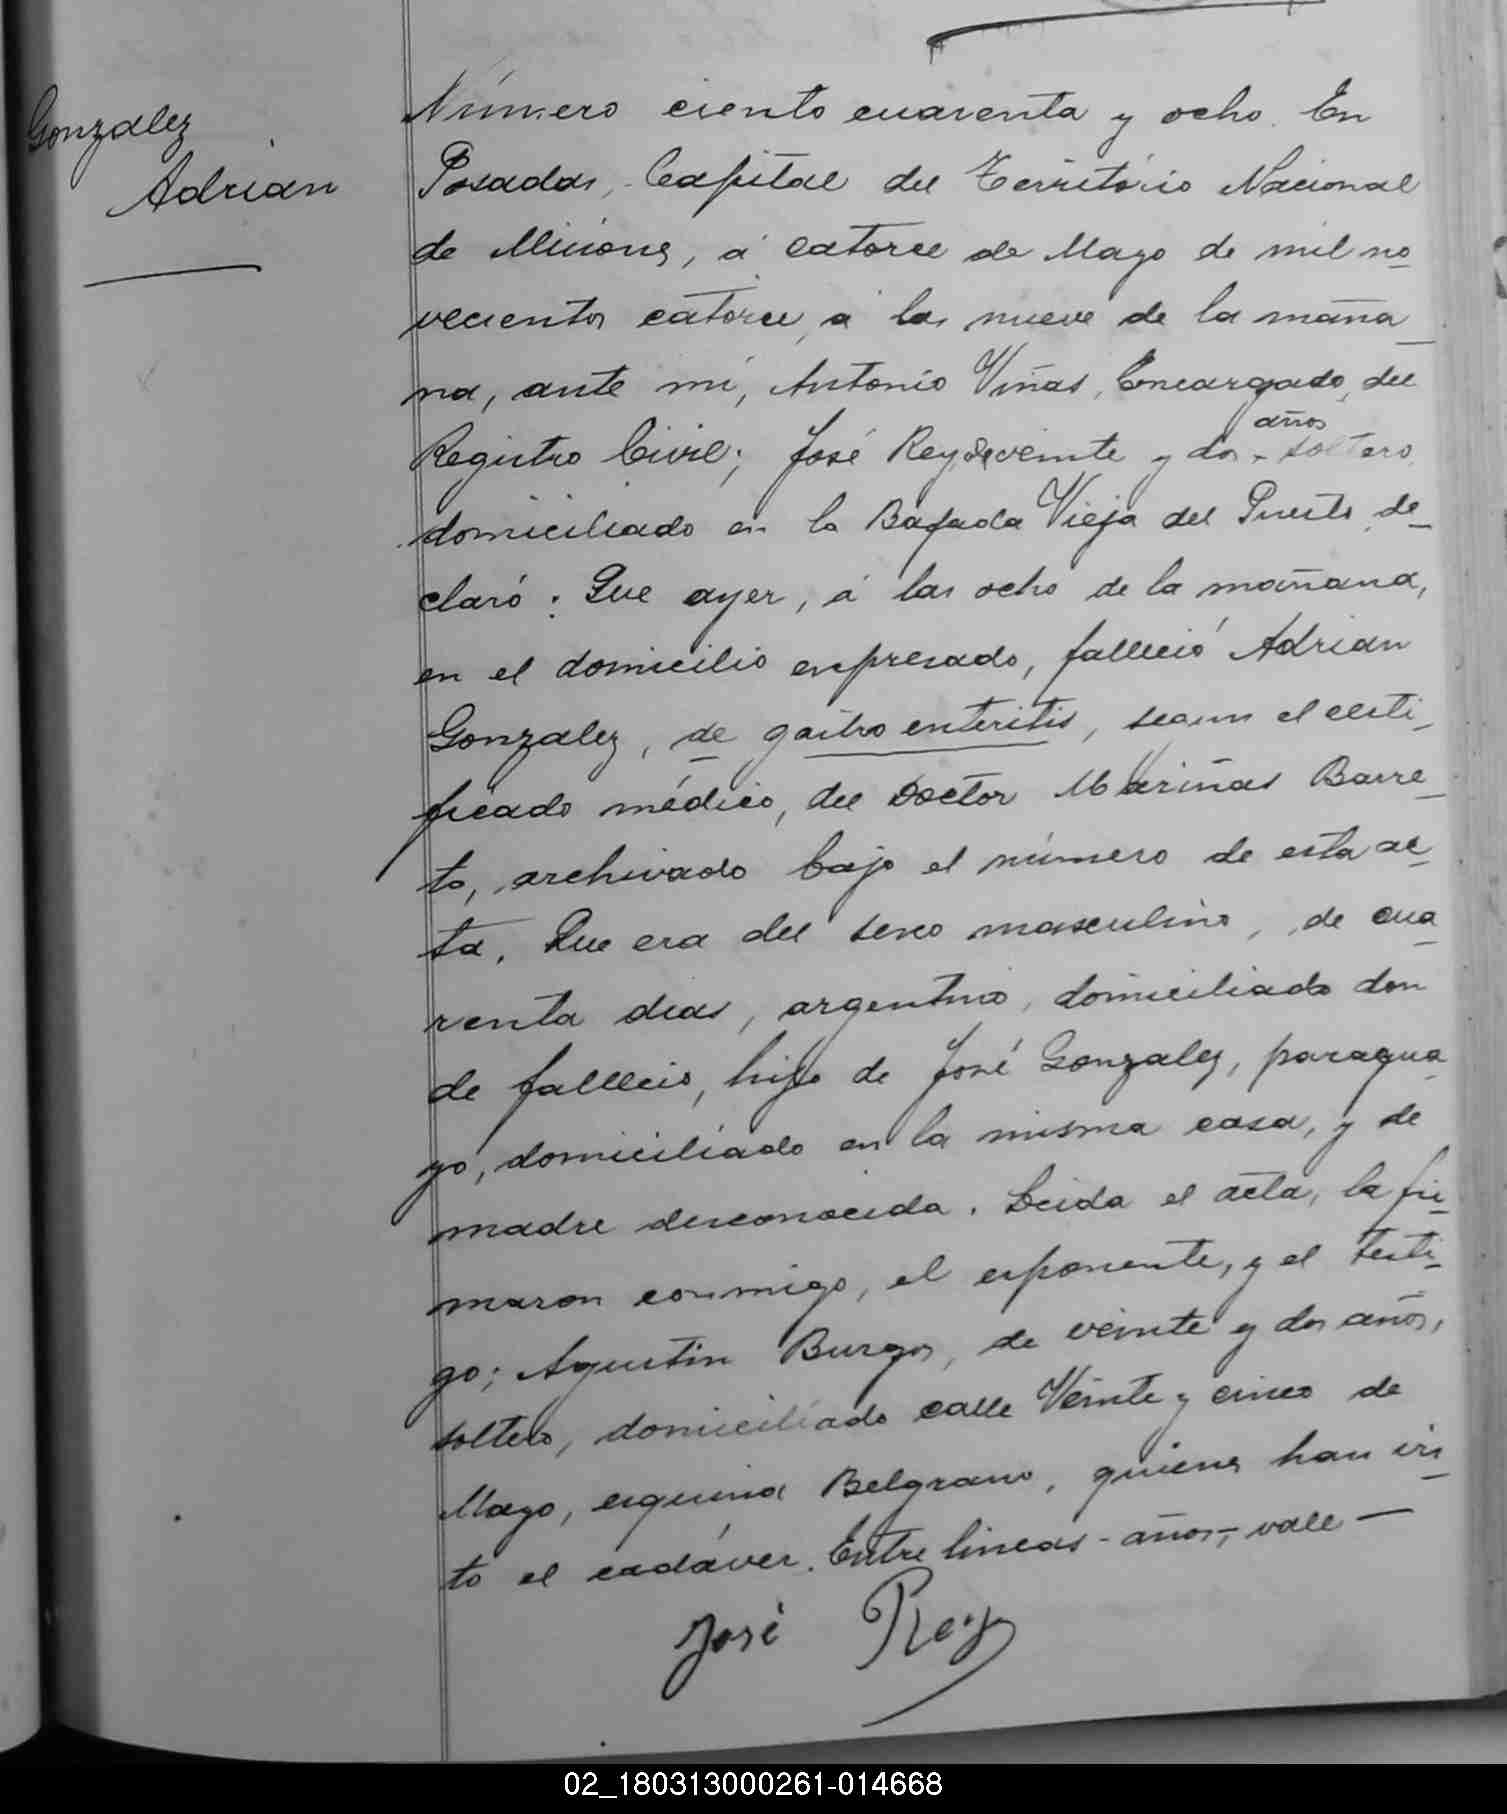 Gonzalez
Adrian
Número ciento cuarenta y ocho. En
Posadas, Capital del Territorio Nacional
de Misiones, á catorce de Mayo de mil no
vecientos catorce, á las nueve de la maña
na, ante mí, Antonio Viñas, Encargado del
Registro Civil; José Rey, de veinte y dos
años
soltero
domiciliado en la Bajada Vieja del Puerto, de
claró: Que ayer, á las ocho de la mañana,
en el domicilio expresado, falleció Adrian
Gonzalez, de gastro enteritis, segun el certi
ficado médico, del Doctor Mariñas Barre
to, archivado bajo el número de esta ac
ta. Que era del sexo masculino, de cua
renta dias, argentino, domiciliado don
de falleció, hijo de José Gonzalez, paragua
yo, domiciliado en la misma casa, y de
madre desconocida. Leida el acta, la fir
maron conmigo, el exponente, y el testi
go; Agustin Burgos, de veinte y dos años,
soltero, domiciliado calle Veinte y cinco de
Mayo, esquina Belgrano, quienes han vis
to el cadáver. Entre lineas - años -, vale —
José Rey
02_180313000261-014668